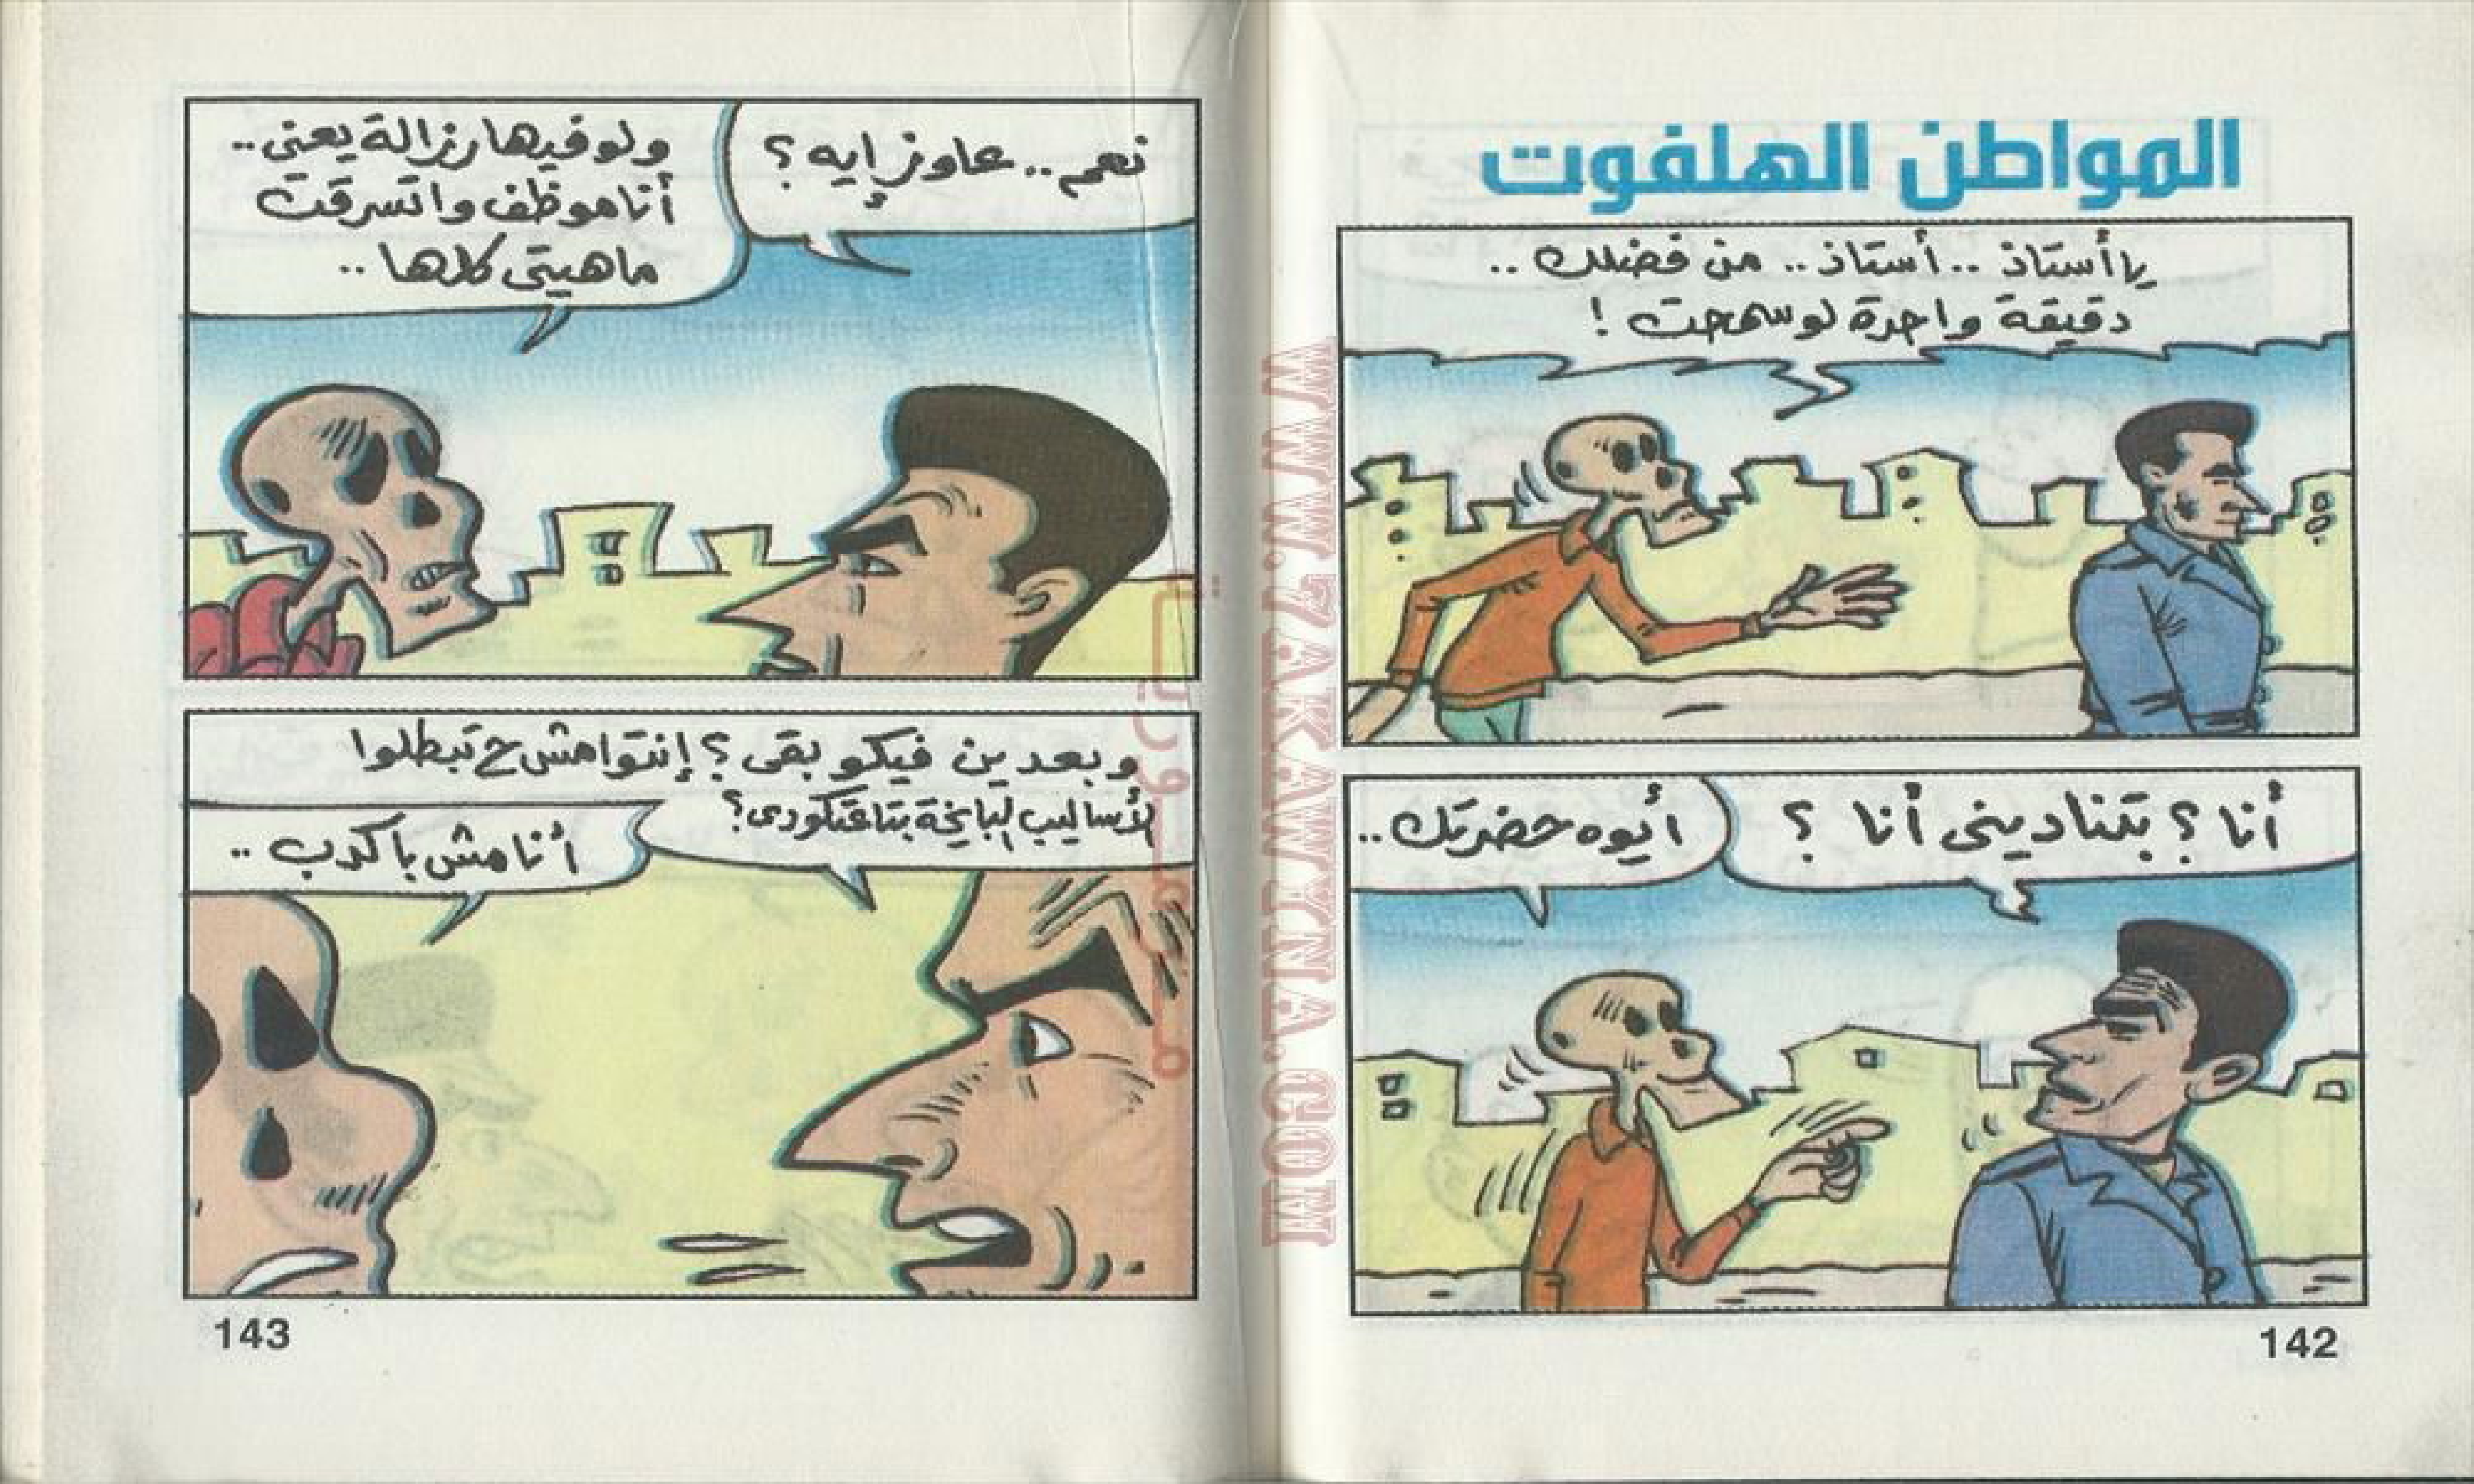 المواطن الهلفوت
يا أستاذ .. أستاذ .. من فضلك ..
دقيقة واحدة لو سمحت !
أنا ؟ بتناديني أنا ؟
أيوه حضرتك ..
142
نعم .. عاوز إيه ؟
ولو فيها رزالة يعني ..
أنا موظف واتسرقت
ماهيتي كلها ..
وبعدين فيكو بقى ؟ إنتوا مش ح تبطلوا
الأساليب البايخة بتاعتكو دى ؟
أنا مش باكدب ..
143
WWW.ZAKAWJNA.COM